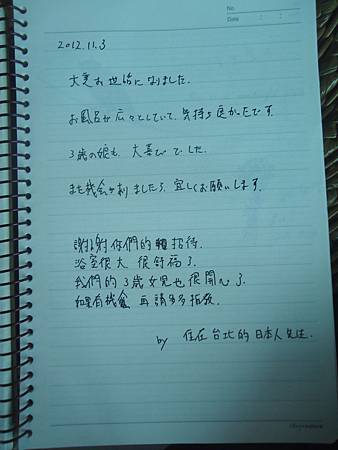 No.
Date
2012.11.3
大変お世話になりました.
お風呂が広々としていて、気持ち良かたです.
3歳の娘も、大喜びでした.
また機会が刺ましたら、宜しくお願いします.
謝謝你們的招待.
浴室很大 很舒福了.
我們的3歲女兒也很開心了.
如果有機會 再請多多指教.
by 住在台北的日本人先生.